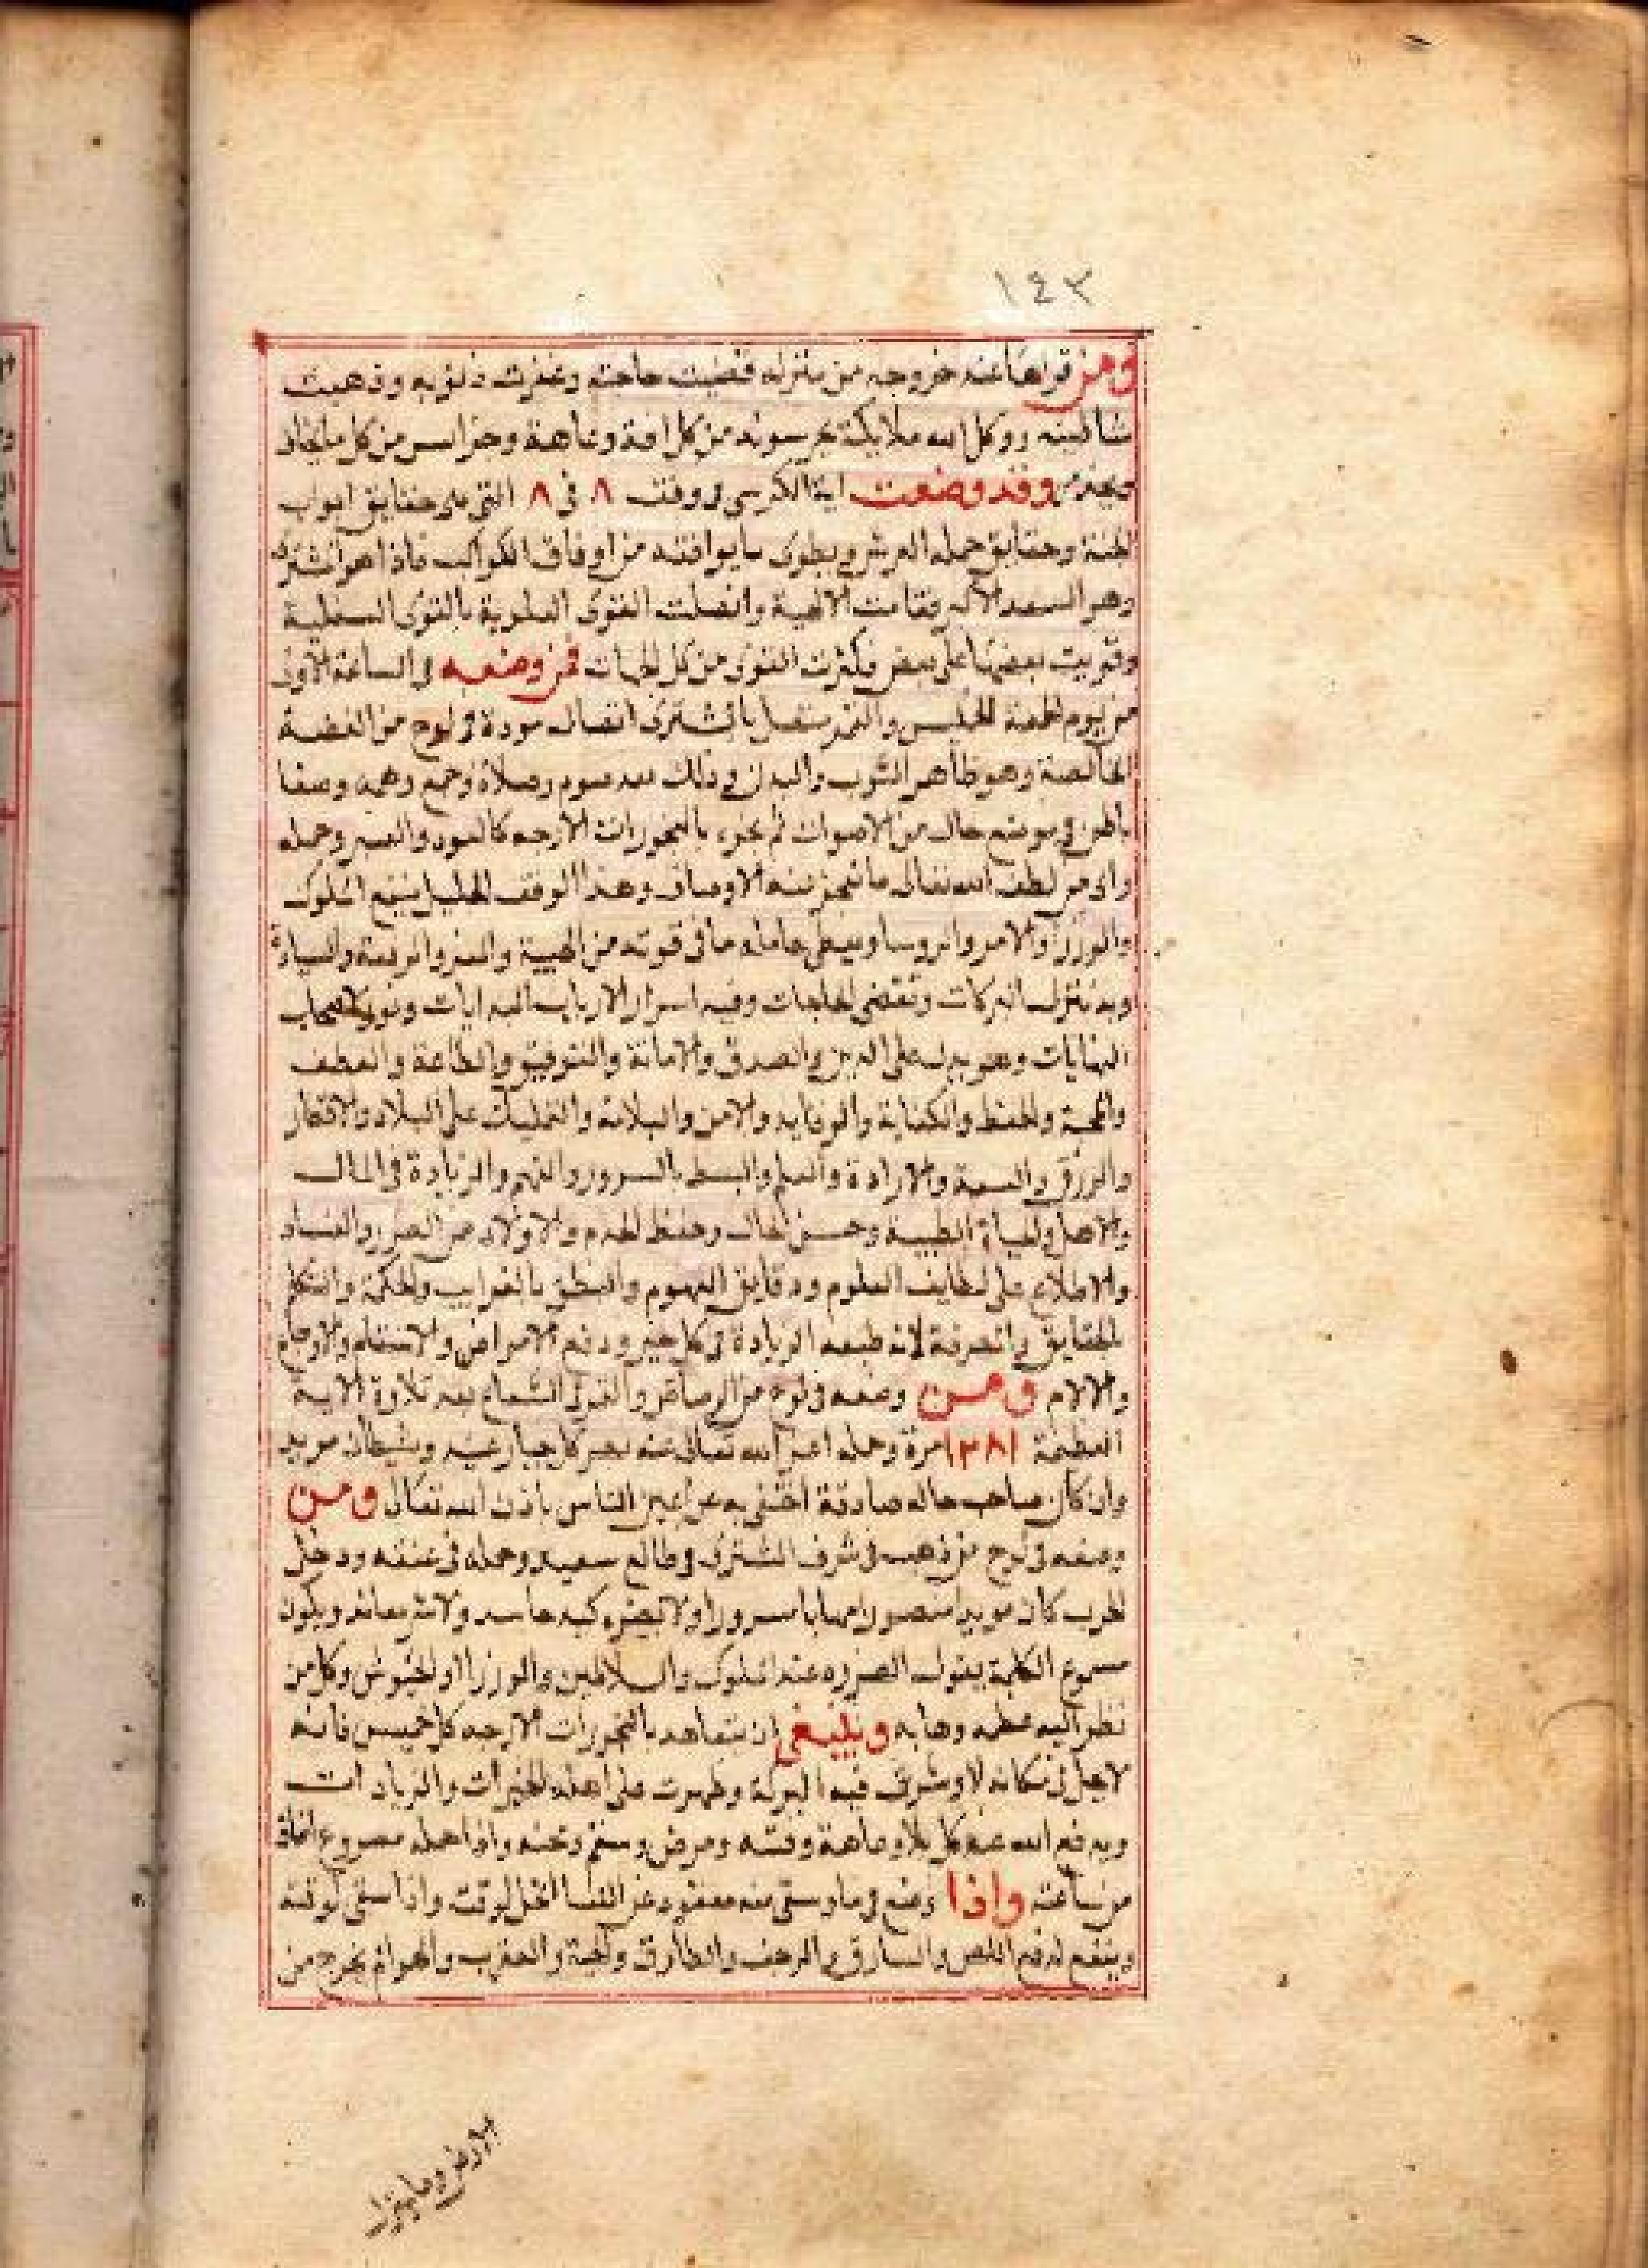 ١٤٣
ومن قراها عند خروجه من منزله قضيت حاجته وغفرت ذنوبه وذهبت
شياطينه ووكل الله ملايكة يحرسونه من كل افة وعاهة وحراسه من كل ما يخاف
وقد وضعت اية الكرسي في وفق ٨ في ٨ التي هي حقايق ابواب
الجنة وحقايق حملة العرش ويطوى ما يوافقه من اوفاق الكواكب فاذا هو المشترى
وهو السعد الاكبر وقامت الالهية واتصلت القوى العلوية بالقوى السفلية
وقربت بعضها على بعض فكثرت القوى من كل الجهات فمن وضعه في الساعة الاولى
من يوم الخميس والقمر متصل بالمشترى اتصال مودة في لوح من الفضة
الخالصة وهو طاهر الثوب والبدن في ذلك بعد صوم وصلاة وجمع وهمه وصفا
باطن في موضع خال من الاصوات ثم بخره بالبخورات الارجه كالعود والعنبر وحمله
راى من لطف الله تعالى ما تعجز عنه الاوصاف وهذا الوفق الجليل ينفع الملوك
والوزرا والامرا والروسا ويعطى حامله ما في قوته من الهيبة والعز والرفعة والسيادة
وبه تنزل البركات وتقضى الحاجات وفيه اسرار لارباب البدايات ونور لاصحاب
النهايات وهو يدل على الدين والصدق والامانة والتوفيق والطاعة والعطف
والمحبة والحفظ والكفاية والوقايه والامن والسلامة والتمليك على البلاد والاقطار
والرزق والسعة والارادة والعلم والبسط بالسرور والفهم والزيادة في المال
والاهل والحياة الطيبة وحسن الحال وحفظ الخدم والاولاد من الضرر والفساد
والاطلاع على لطايف العلوم ودقايق الفهوم والنطق بالغرايب والحكمة والتكلم
بالحقايق والمعرفة لانه طبعه الزيادة في كل خير ودفع الامراض والاسقام والاوجاع
والالام ومن وضعه في لوح من الرصاص والقمر في الشعاع بعد تلاوة الاية
العظيمة ١٣٨١ مرة وحمله اعمى الله تعالى عنه بصر كل جبار عنيد وشيطان مريد
وان كان صاحب حاله صادقة اختفى به عن اعين الناس باذن الله تعالى ومن
وضعه في لوح من ذهب في شرف المشترى في طالع سعيد وحمله في عنقه ودخل
الحرب كان مويدا منصورا مهابا مسرورا ولا يضره كيد حاسد ولا شر معاند ويكون
مسموع الكلمة مقبول الصورة عند الملوك والسلاطين والوزرا والجيوش وكل من
نظر اليه عظمه وهابه وينبغي ان يتعاهد بالبخورات الارجه كل خميس فانه
لا يجعل في مكان الا وشرقت فيه البركة وظهرت على اهله الخيرات والزيادات
ويدفع الله عنه كل بلا وعاهة وفتنه ومرض وسقم ومحنه واذا حمله مصروع افاق
من ساعته واذا وضع في ما وسقى منه معقود عن النسا انحل لوقته واذا سقى لوقته
وينفع لدفع اللص والسارق والرجف والطارق والحية والعقرب والهوام يخرج من